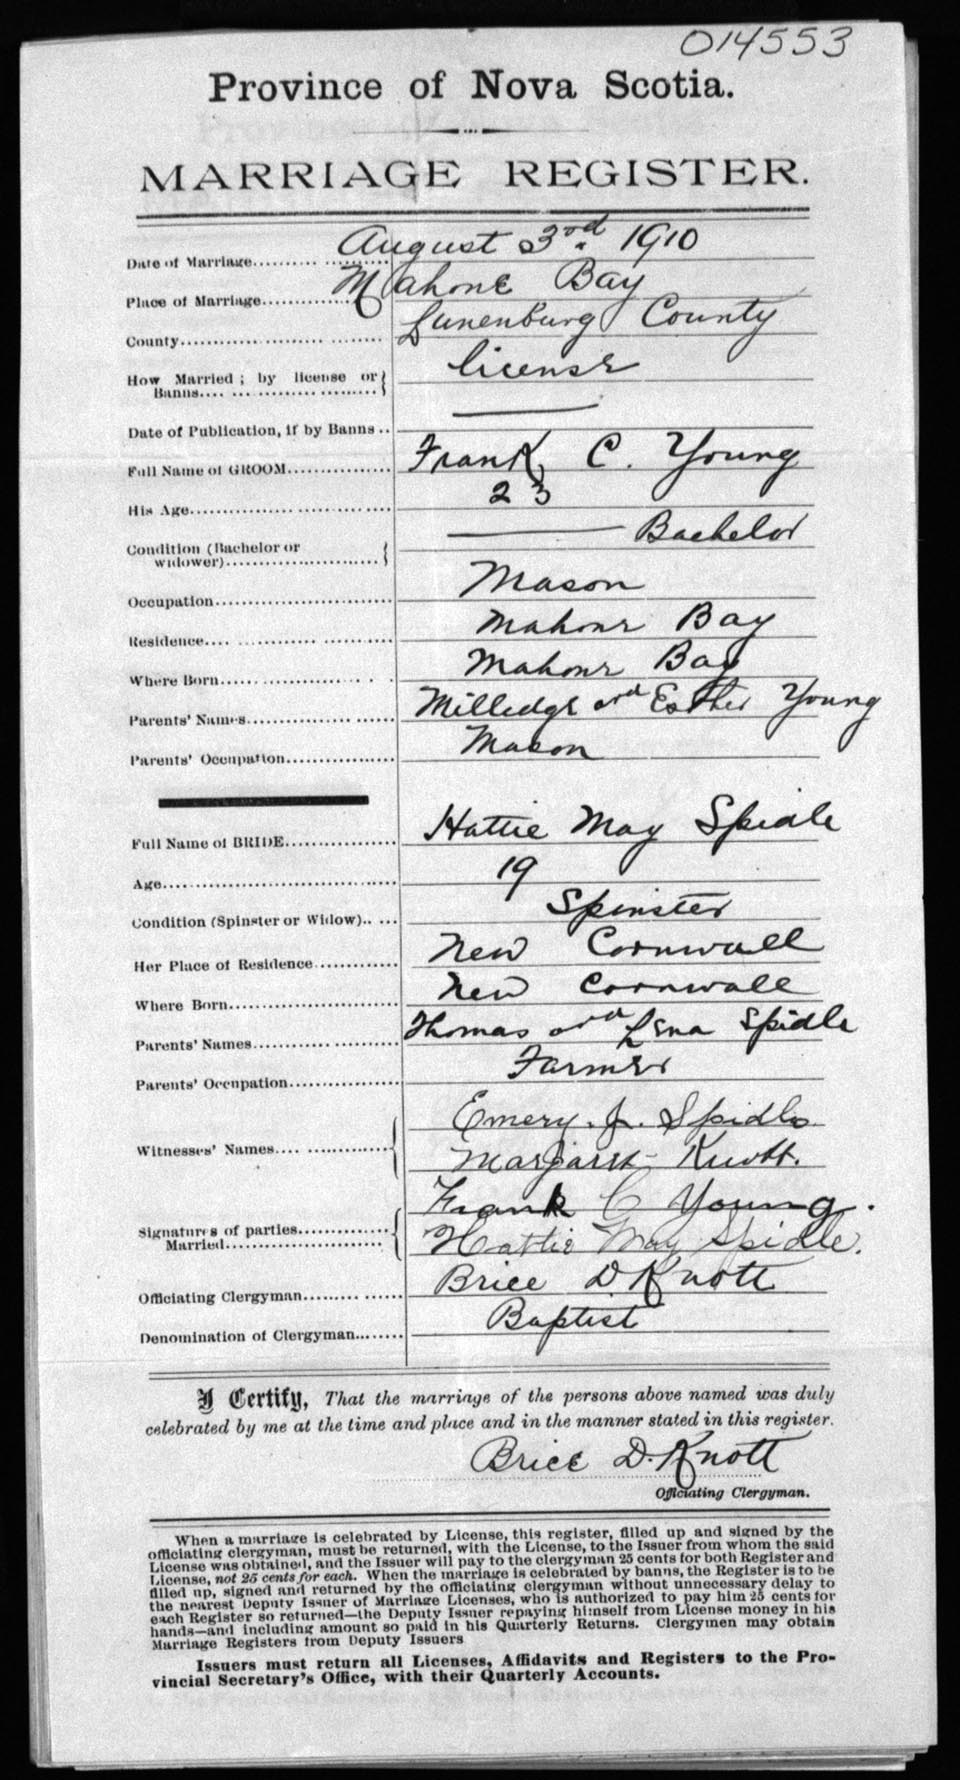 014553
Province of Nova Scotia.
MARRIAGE REGISTER.
Date of Marriage.......... August 3rd. 1910
Place of Marriage.......... Mahone Bay
County.......... Lunenburg County
How Married ; by license or Banns.......... license
Date of Publication, if by Banns .. ———
Full Name of GROOM.......... Frank C. Young
His Age.......... 23
Condition (Bachelor or widower).......... ——— Bachelor
Occupation.......... Mason
Residence.......... Mahone Bay
Where Born.......... Mahone Bay
Parents' Names.......... Milledge and Esther Young
Parents' Occupation.......... Mason
Full Name of BRIDE.......... Hattie May Spidle
Age.......... 19
Condition (Spinster or Widow)...... Spinster
Her Place of Residence.......... New Cornwall
Where Born.......... New Cornwall
Parents' Names.......... Thomas and Lena Spidle
Parents' Occupation.......... Farmer
Witnesses' Names.......... Emery. J. Spidle
Margaret Knott.
Signatures of parties Married.......... Frank C Young.
Hattie May Spidle.
Officiating Clergyman.......... Brice D. Knott
Denomination of Clergyman....... Baptist
I Certify, That the marriage of the persons above named was duly
celebrated by me at the time and place and in the manner stated in this register.
Brice D. Knott
Officiating Clergyman.
When a marriage is celebrated by License, this register, filled up and signed by the
officiating clergyman, must be returned, with the License, to the Issuer from whom the said
License was obtained, and the Issuer will pay to the clergyman 25 cents for both Register and
License, not 25 cents for each. When the marriage is celebrated by banns, the Register is to be
filled up, signed and returned by the officiating clergyman without unnecessary delay to
the nearest Deputy Issuer of Marriage Licenses, who is authorized to pay him 25 cents for
each Register so returned—the Deputy Issuer repaying himself from License money in his
hands—and including amount so paid in his Quarterly Returns. Clergymen may obtain
Marriage Registers from Deputy Issuers
Issuers must return all Licenses, Affidavits and Registers to the Pro-
vincial Secretary's Office, with their Quarterly Accounts.